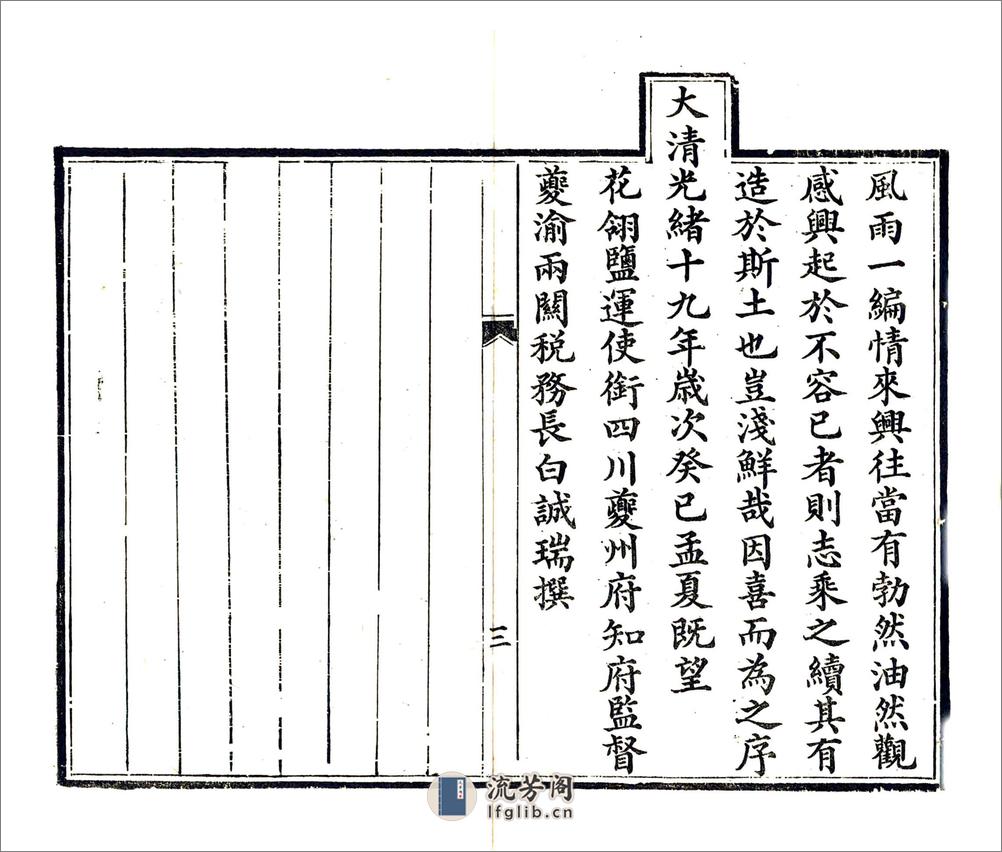 風雨一編情來興往當有勃然油然觀
感興起於不容已者則志乘之續其有
造於斯土也豈淺鮮哉因喜而為之序
大清光緒十九年歲次癸巳孟夏既望
花翎鹽運使銜四川夔州府知府監督
夔渝兩關税務長白誠瑞撰
三
流芳阁
lfglib.cn